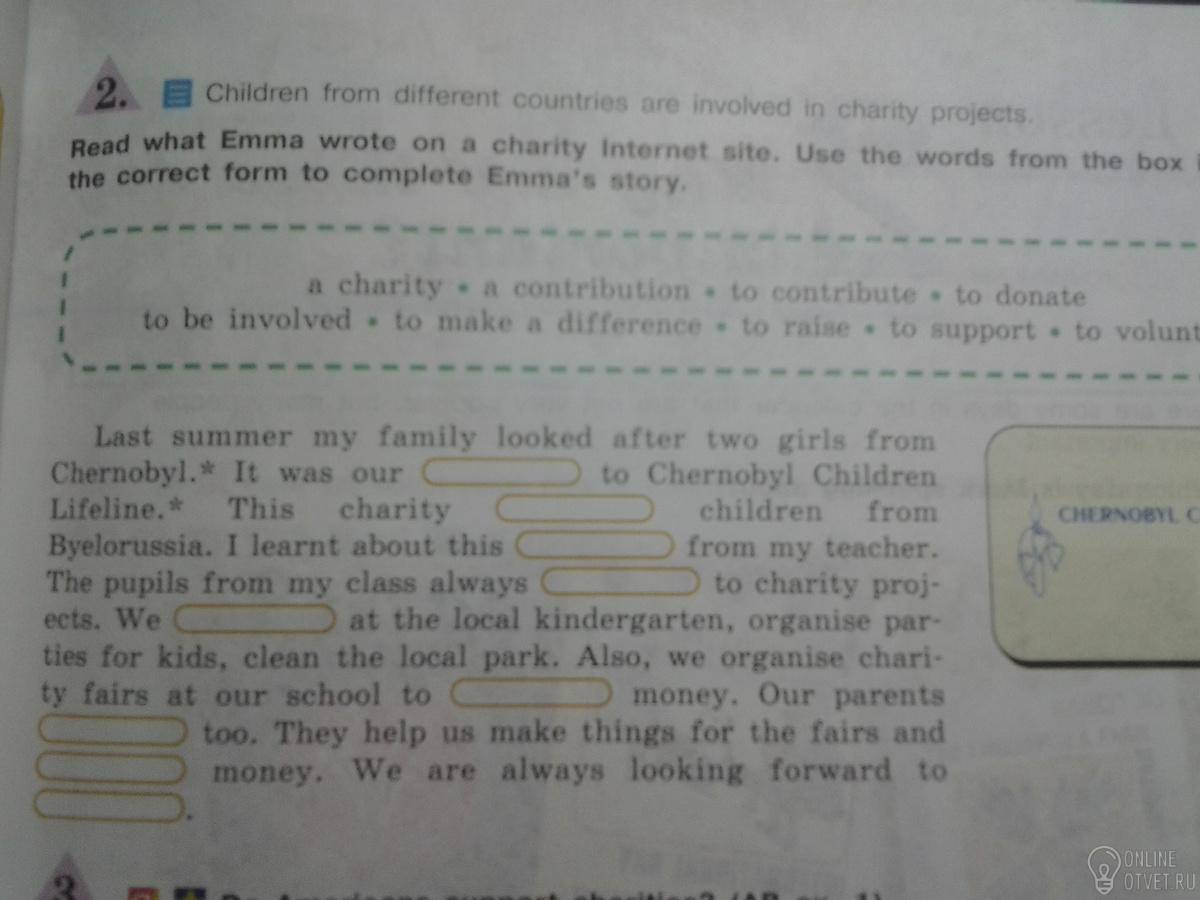 2. Children from different countries are involved in charity projects.
Read what Emma wrote on a charity Internet site. Use the words from the box
the correct form to complete Emma's story.
a charity • a contribution • to contribute • to donate
to be involved • to make a difference • to raise • to support • to volunt
Last summer my family looked after two girls from
Chernobyl.* It was our to Chernobyl Children
Lifeline.* This charity children from
Byelorussia. I learnt about this from my teacher.
The pupils from my class always to charity proj-
ects. We at the local kindergarten, organise par-
ties for kids, clean the local park. Also, we organise chari-
ty fairs at our school to money. Our parents
too. They help us make things for the fairs and
money. We are always looking forward to
.
CHERNOBYL C
3
ONLINE
OTVET.RU